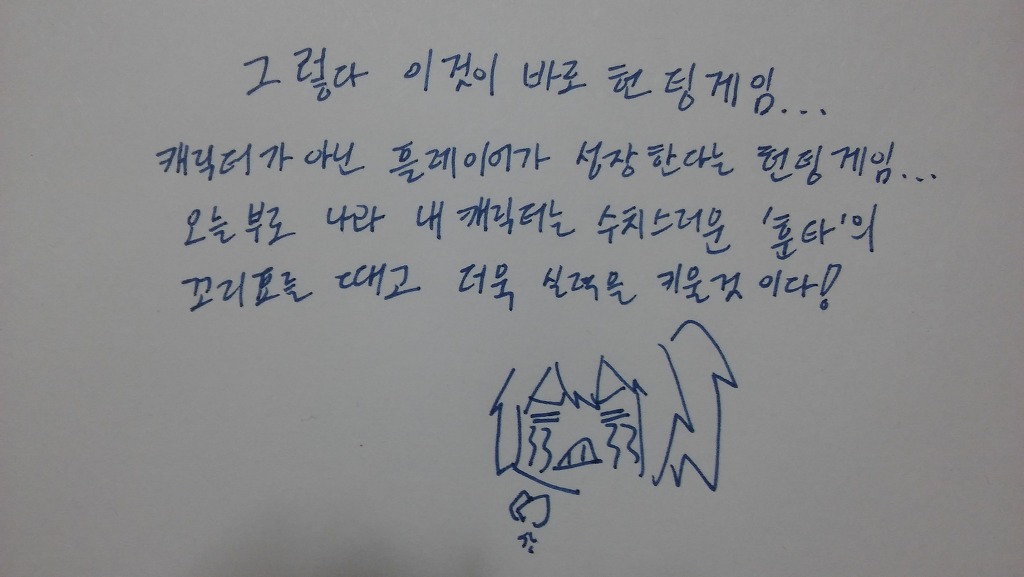 그렇다 이것이 바로 헌팅게임...
캐릭터가 아닌 플레이어가 성장한다는 헌팅게임...
오늘부로 나와 내 캐릭터는 수치스러운 '훈타'의
꼬리표를 때고 더욱 실력을 키울것이다!